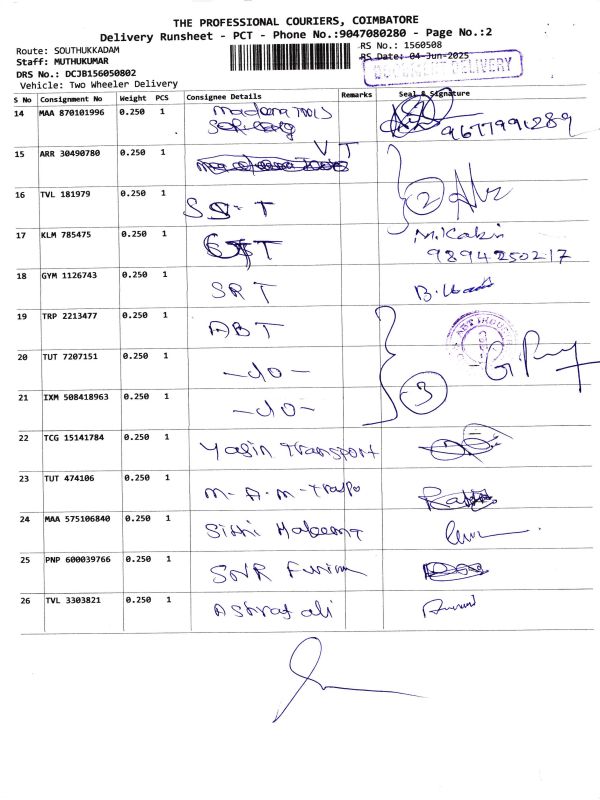 THE PROFESSIONAL COURIERS, COIMBATORE
Delivery Runsheet - PCT - Phone No.:9047080280 - Page No.:2
Route: SOUTHUKKADAM
RS No.: 1560508
Staff: MUTHUKUMAR
RS Date: 04-Jun-2025
DOCUMENT DELIVERY
DRS No.: DCJB156050802
Vehicle: Two Wheeler Delivery
S No Consignment No Weight PCS Consignee Details Remarks Seal & Signature
14 MAA 870101996 0.250 1
9677991289
15 ARR 30490780 0.250 1 V T
16 TVL 181979 0.250 1 2
17 KLM 785475 0.250 1
9894250217
18 GYM 1126743 0.250 1 SRT
19 TRP 2213477 0.250 1 ABT
20 TUT 7207151 0.250 1 -do-
21 IXM 508418963 0.250 1 -do- 3
22 TCG 15141784 0.250 1 Yasin Transport
23 TUT 474106 0.250 1 M.A.M-
24 MAA 575106840 0.250 1
25 PNP 600039766 0.250 1 SNR
26 TVL 3303821 0.250 1 Ashraf ali